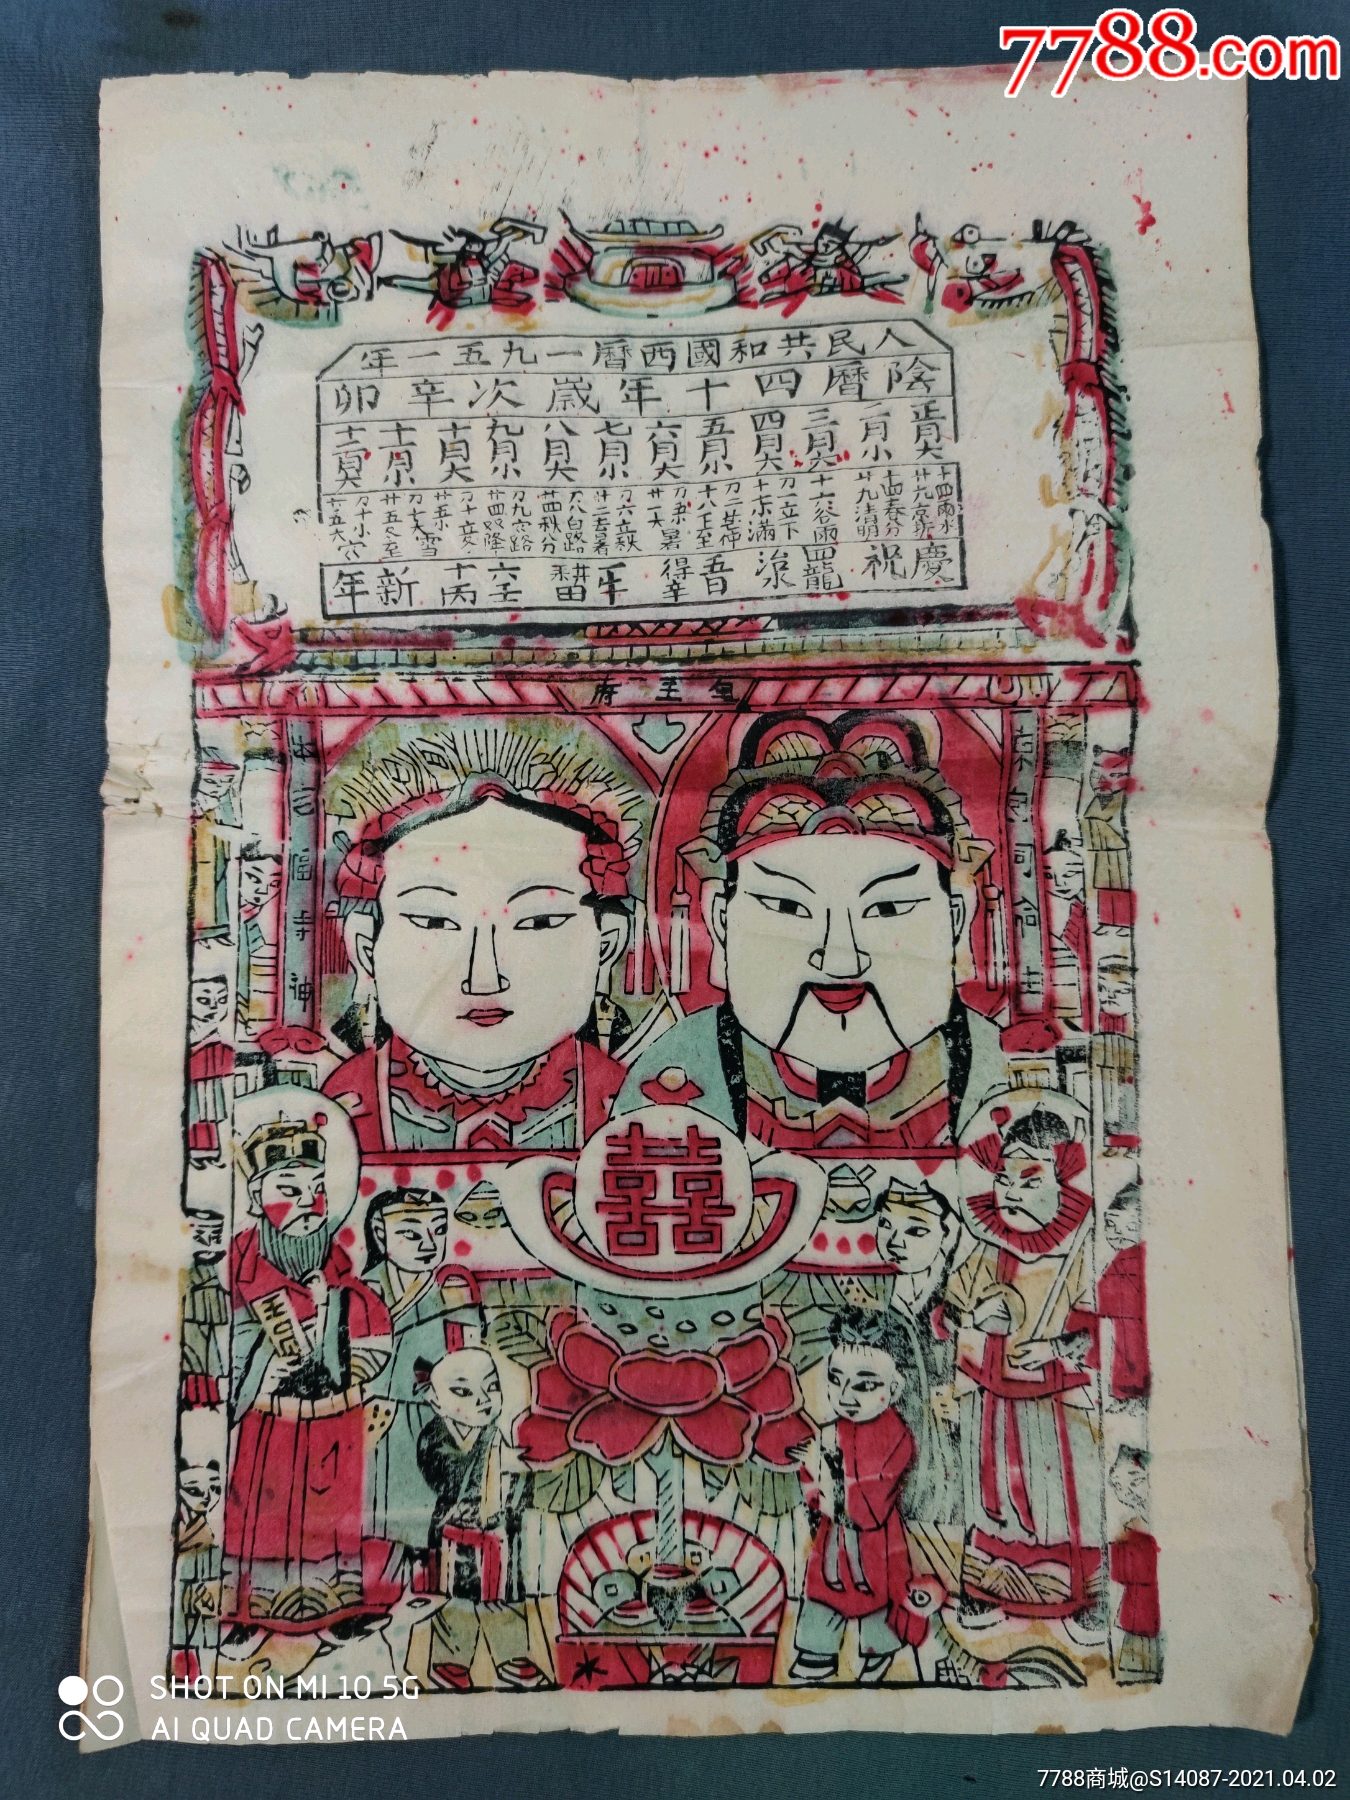 7788.com
人民共和國西曆一九五一年
陰曆四十年歲次辛卯
正月大 二月小 三月大 四月大 五月小 六月大 七月小 八月大 九月小 十月大 十一月小 十二月大
十四雨水
十四春分
廿九清明
十六谷雨
刀一立下
十七小滿
十八下至
廿一大暑
刀六立秋
廿二去暑
刀八白路
廿四秋分
刀九寒路
廿四双降
刀十立冬
廿五小雪
刀七大雪
廿五冬至
刀十小寒
廿五大寒
慶祝 四龍治水 五日得辛 一牛耕田 六壬 十丙 新年
皂王府
東京司命主
SHOT ON MI 10 5G
AI QUAD CAMERA
7788商城@S14087-2021.04.02